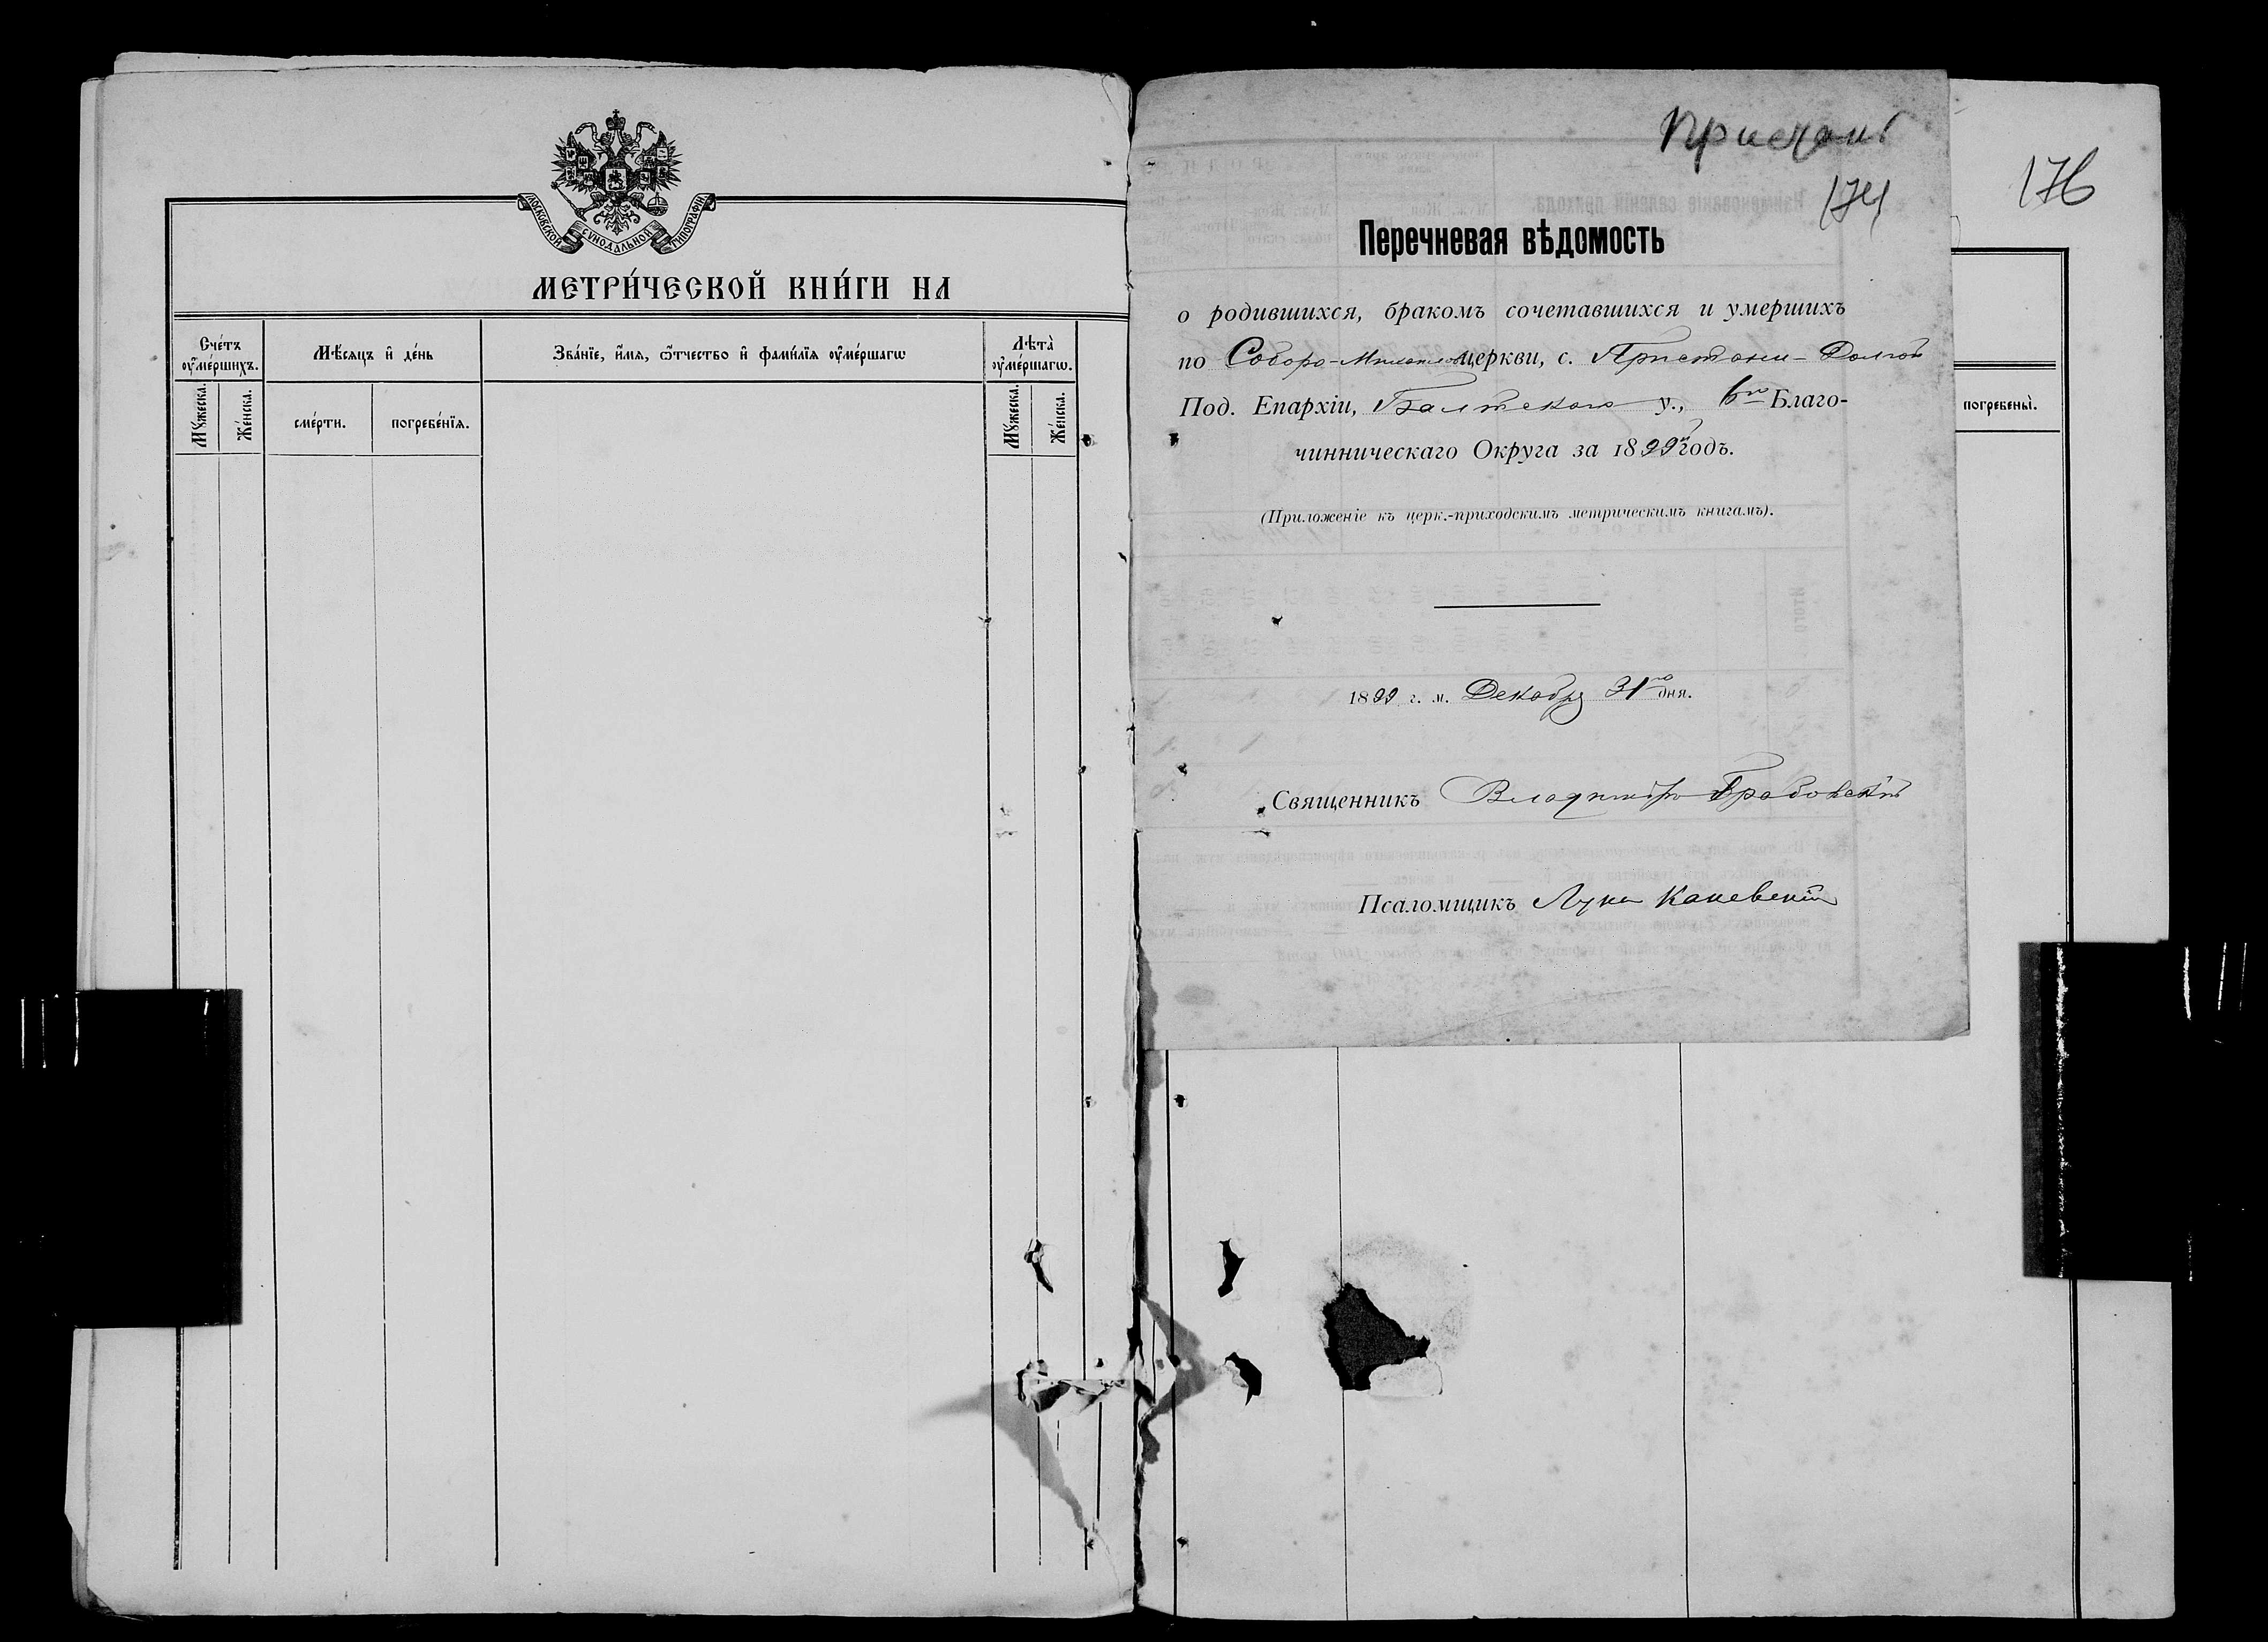 МОСКОВСКОЙ СУНОДАЛЬНОЙ ТИПОГРАФІИ
МЕТРИ́ЧЕСКОЙ КНИ́ГИ НА
Сче́тъ ᲂу҆ме́ршихъ.
Мѣ́сяцъ и҆ де́нь
Зва́нїе, и҆́мя, ѿтчество и҆ фами́лїя ᲂу҆ме́ршагѡ
Лѣта̀ ᲂу҆ме́ршагѡ.
Мꙋ́жеска.
Же́нска.
сме́рти.
погребе́нїя.
Мꙋ́жеска.
Же́нска.
174
Перечневая вѣдомость
о родившихся, бракомъ сочетавшихся и умершихъ
по Соборо-Михайлов церкви, с. Пристани-Долгой
Под. Епархіи, Балтскаго у., 6го Благо-
чинническаго Округа за 1899й годъ.
(Приложеніе къ церк.-приходскимъ метрическимъ книгамъ).
1899 г. м. Декабря 31го дня.
Священникъ Владиміръ Грабовскій
Псаломщикъ Лука Каневскій
176
погребены̀.